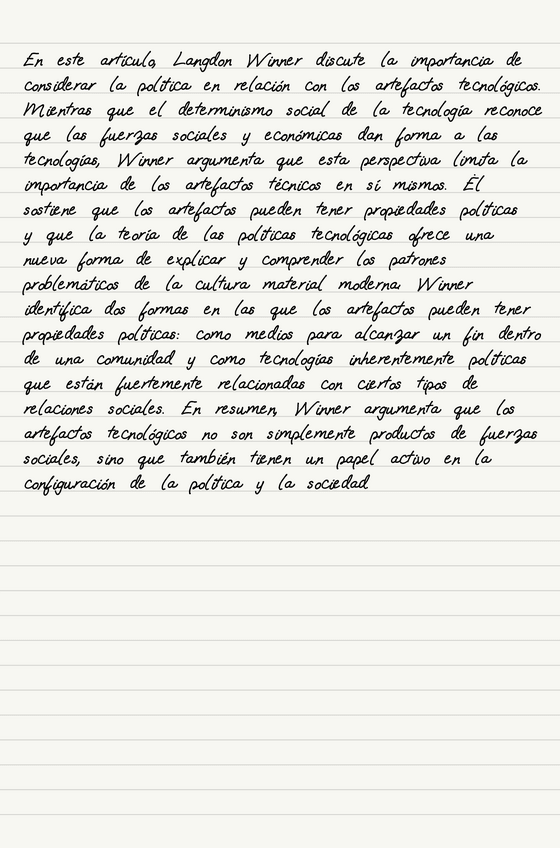 En este artículo, Langdon Winner discute la importancia de
considerar la política en relación con los artefactos tecnológicos.
Mientras que el determinismo social de la tecnología reconoce
que las fuerzas sociales y económicas dan forma a las
tecnologías, Winner argumenta que esta perspectiva limita la
importancia de los artefactos técnicos en sí mismos. Él
sostiene que los artefactos pueden tener propiedades políticas
y que la teoría de las políticas tecnológicas ofrece una
nueva forma de explicar y comprender los patrones
problemáticos de la cultura material moderna. Winner
identifica dos formas en las que los artefactos pueden tener
propiedades políticas: como medios para alcanzar un fin dentro
de una comunidad y como tecnologías inherentemente políticas
que están fuertemente relacionadas con ciertos tipos de
relaciones sociales. En resumen, Winner argumenta que los
artefactos tecnológicos no son simplemente productos de fuerzas
sociales, sino que también tienen un papel activo en la
configuración de la política y la sociedad